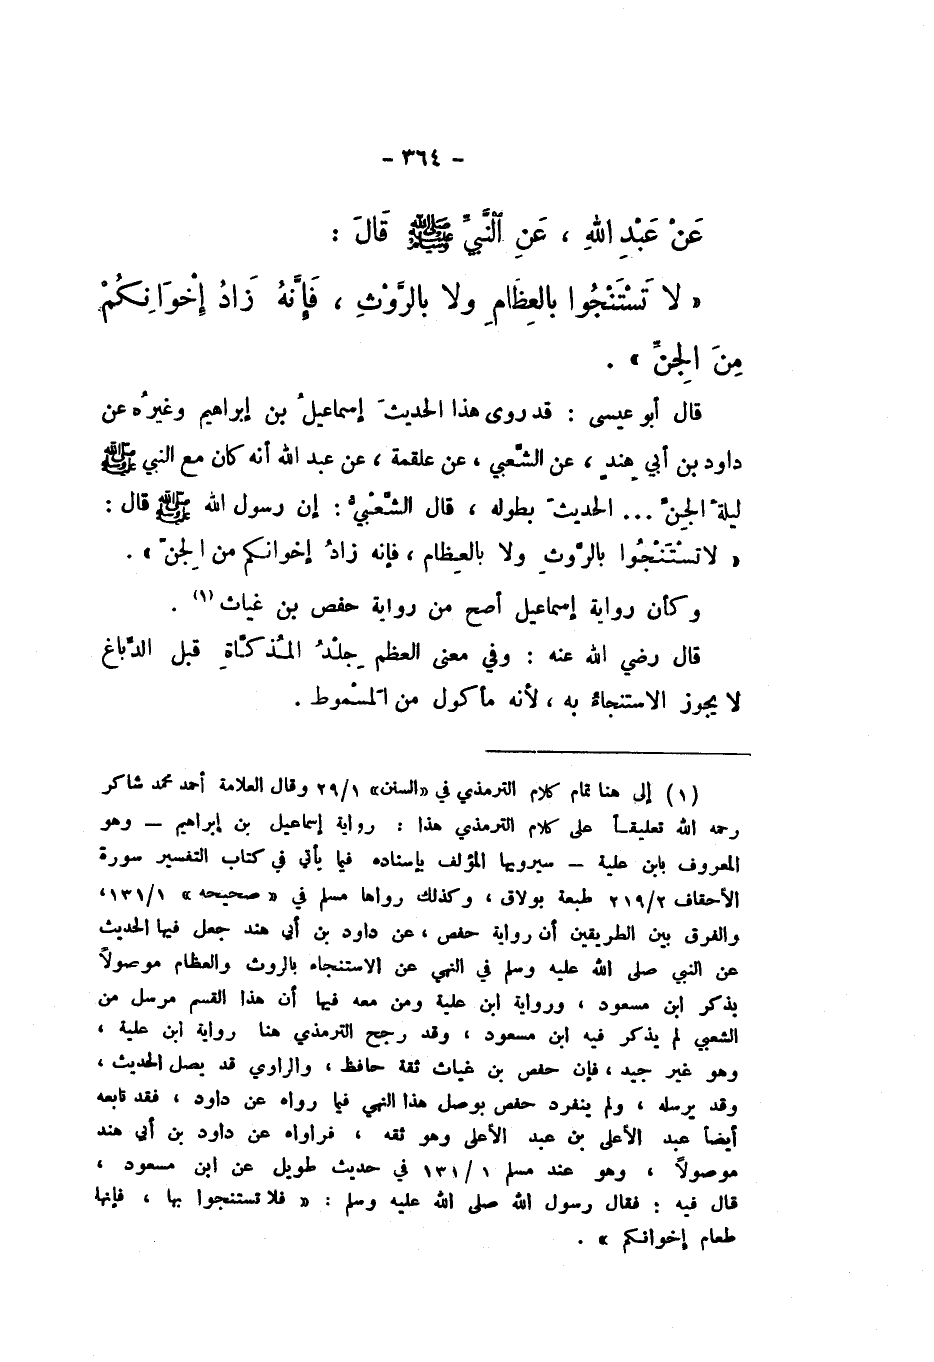 - ٣٦٤ -
عَنْ عَبْدِ اللهِ ، عَنِ ٱلنَّبِيِّ ﷺ قَالَ :
« لا تَسْتَنْجُوا بالعِظَامِ ولا بالرَّوْثِ ، فَإِنَّهُ زَادُ إِخْوَانِكُمْ
مِنَ الجِنِّ » .
قال أبو عيسى : قد روى هذا الحديثَ إسماعيلُ بن إبراهيم وغيرُه عن
داود بن أبي هِندٍ ، عن الشَّعبي ، عن علقمة ، عن عبد الله أنه كان مع النبي ﷺ
ليلةَ الجِنِّ ... الحديثَ بطوله ، قال الشَّعْبيُّ : إن رسول الله ﷺ قال :
« لا تسْتَنْجُوا بالرَّوثِ ولا بالعِظام ، فإنه زادُ إخوانكم من الجِنّ » .
وكأن رواية إسماعيل أصح من رواية حفص بن غياث (١) .
قال رضي الله عنه : وفي معنى العظم جِلْدُ المُذكَّاةِ قبل الدِّباغ
لا يجوز الاستنجاءُ به ، لأنه مأكول من المَسْموط .
(١) إلى هنا تمام كلام الترمذي في «السنن» ٢٩/١ وقال العلامة أحمد محمد شاكر
رحمه الله تعليقاً على كلام الترمذي هذا : رواية إسماعيل بن إبراهيم – وهو
المعروف بابن علية – سيرويها المؤلف بإسناده فيما يأتي في كتاب التفسير سورة
الأحقاف ٢١٩/٢ طبعة بولاق ، وكذلك رواها مسلم في « صحيحه » ١٣١/١،
والفرق بين الطريقين أن رواية حفص ، عن داود بن أبي هند جعل فيها الحديث
عن النبي صلى الله عليه وسلم في النهي عن الاستنجاء بالروث والعظام موصولاً
بذكر ابن مسعود ، ورواية ابن علية ومن معه فيها أن هذا القسم مرسل من
الشعبي لم يذكر فيه ابن مسعود ، وقد رجح الترمذي هنا رواية ابن علية ،
وهو غير جيد ، فإن حفص بن غياث ثقة حافظ ، والراوي قد يصل الحديث ،
وقد يرسله ، ولم ينفرد حفص بوصل هذا النهي فيما رواه عن داود ، فقد تابعه
أيضاً عبد الأعلى بن عبد الأعلى وهو ثقه ، فراواه عن داود بن أبي هند
موصولاً ، وهو عند مسلم ١٣١/١ في حديث طويل عن ابن مسعود ،
قال فيه : فقال رسول الله صلى الله عليه وسلم : « فلا تستنجوا بها ، فإنها
طعام إخوانكم » .